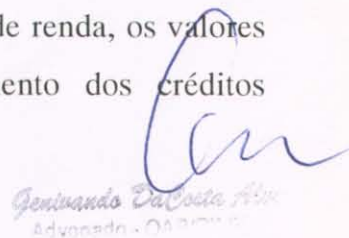 de renda, os valores
ento dos créditos
Genivando Da Costa
Advogado - OAB